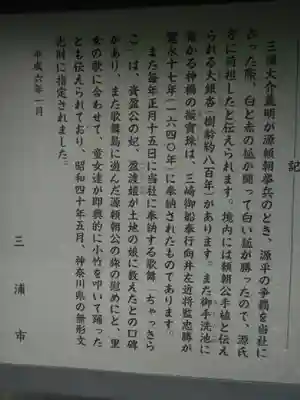 記
三浦大介義明が源頼朝挙兵のとき、源平の争覇を当社に
占った際、白と赤の狐が闘って白い狐が勝ったので、源氏
方に荷担したと伝えられます。境内には頼朝公手植と伝え
られる大銀杏(樹齢約八百年)があります。また御手洗池に
架かる神橋の擬宝珠は、三崎御船奉行向井左近将監忠勝が
寛永十七年(一六四〇年)に奉納されたものであります。
また毎年正月十五日に当社に奉納する歌舞「ちゃっきら
こ」は、資盈公の妃、盈渡姫が土地の娘に教えたとの口碑
があり、また歌舞島に遊んだ源頼朝公の旅の慰めにと、里
女の歌に合わせて、童女達が即興的に小竹を叩いて踊った
とも伝えられており、昭和四十年五月、神奈川県の無形文
化財に指定されました。
平成六年一月
三浦市